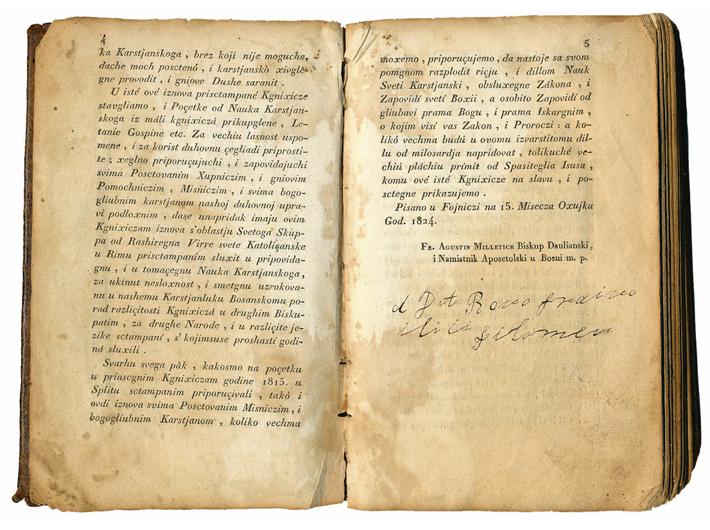 4
ka Karstjanskoga , brez koji nije mogucha,
dache moch posctenó , i karstjanskò xivglegne
provodit , i gniove Dushe saranit .
U isté ové iznova prisctampané Kgnixicze
stavgliamo , i Poçetke od Nauka Karstjanskoga
iz máli kgnixiczá prikupglene , Letanie
Gospine etc. Za vechiu lasnost uspomene
, i za korist duhovnu çegliadi priprostite
; xeglno priporuçujuchi , i zapovidajuchi
svima Posctovaním Xupniczim , i gniovim
Pomochniczim , Misniczim , i svima bogogliubnim
karstjanom nashoj duhovnoj upravi
podloxnim , dase unapridak imaju ovim
Kgnixiczam iznova s'oblastju Svetoga Skuppa
od Rashiregna Virre svete Katoliçanske
u Rimu prisctampaním sluxit u pripovidagnu
, i u tomaçegnu Nauka Karstjanskoga,
za ukinut nesloxnost , i smetgnu uzrokovanu
u nashemu Karstjanluku Bosanskomu porad
razliçitosti Kgnixiczá u drughim Biskupatim
, za drughe Narode , i u razliçite jezike
sctampaní , s' kojimsuse proshastí godiná
sluxili .
Svarhu svega pàk , kakosmo na poçetku
u priascgním Kgnixiczam godine 1815. u
Splitu sctampaním priporuçivali , takó i
ovdi iznova svima Posctovanim Misniczim , i
bogogliubnim Karstjanom , koliko vechma
5
moxemo , priporuçujemo , da nastoje sa svom
pomgnom razplodit riçju , i dillom Nauk
Sveti Karstjanski , obsluxegne Zákona , i
Zapovidí svetí Boxii , a osobito Zapovidi od
gliubavi prama Bogu , i prama Iskargnim ,
o kojim visí vas Zakon , i Proroczi : a kolikó
vechma budú u ovomu izvarstitomu dillu
od milosardja napridovat , tolikuché vechiú
pláchiu prímit od Spasiteglia Isusa ,
komu ové isté Kgnixicze na slavu , i posctegne
prikazujemo .
Pisano u Fojniczi na 15. Misecza Oxujka
God. 1824.
Fr. Agustin Milletich Biskup Daulianski,
i Namistnik Aposctolski u Bosni m. p.